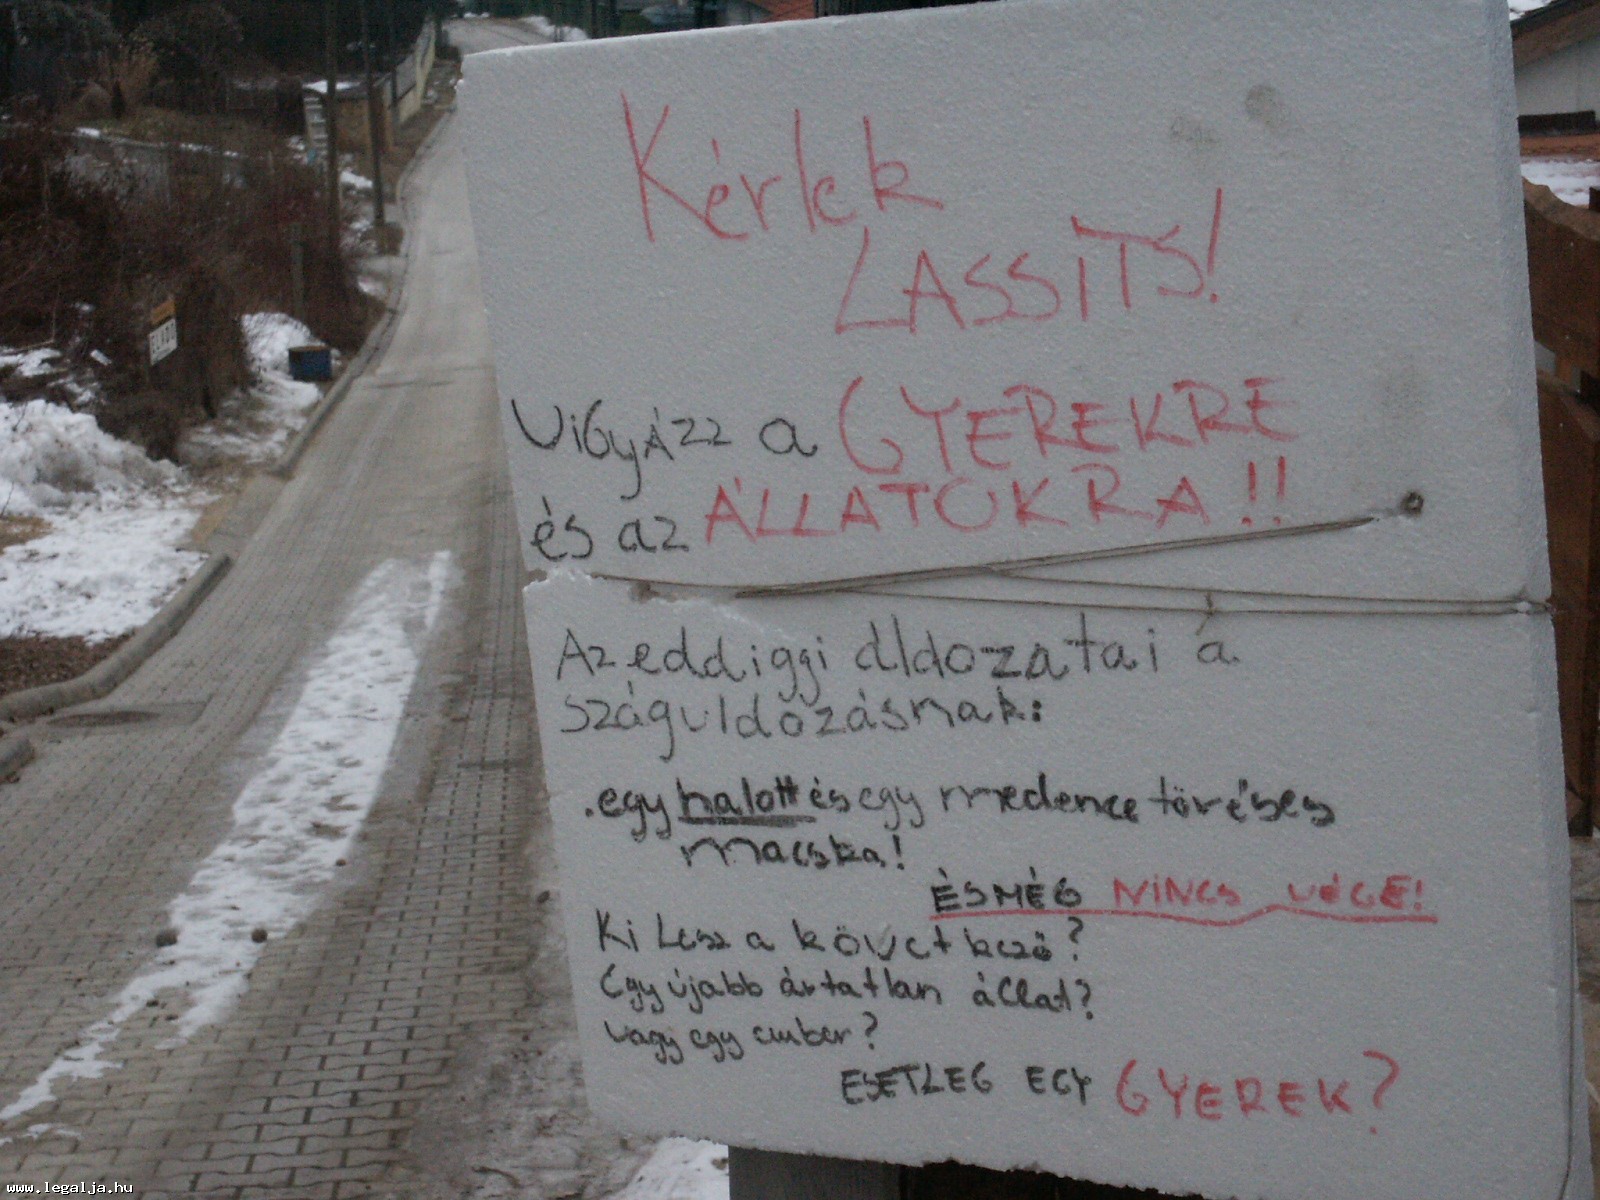 Kérlek
LASSÍTS!
ViGyázz a GYEREKRE
és az ÁLLATOKRA!!
Az eddiggi áldozatai a
száguldozásnak:
.egy halott és egy medence töréses
macska!
ÉS MÉG NINCS VÉGE!
Ki Lesz a következő?
Egy újabb ártatlan állat?
vagy egy ember?
ESETLEG EGY GYEREK?
ELADÓ
www.legalja.hu